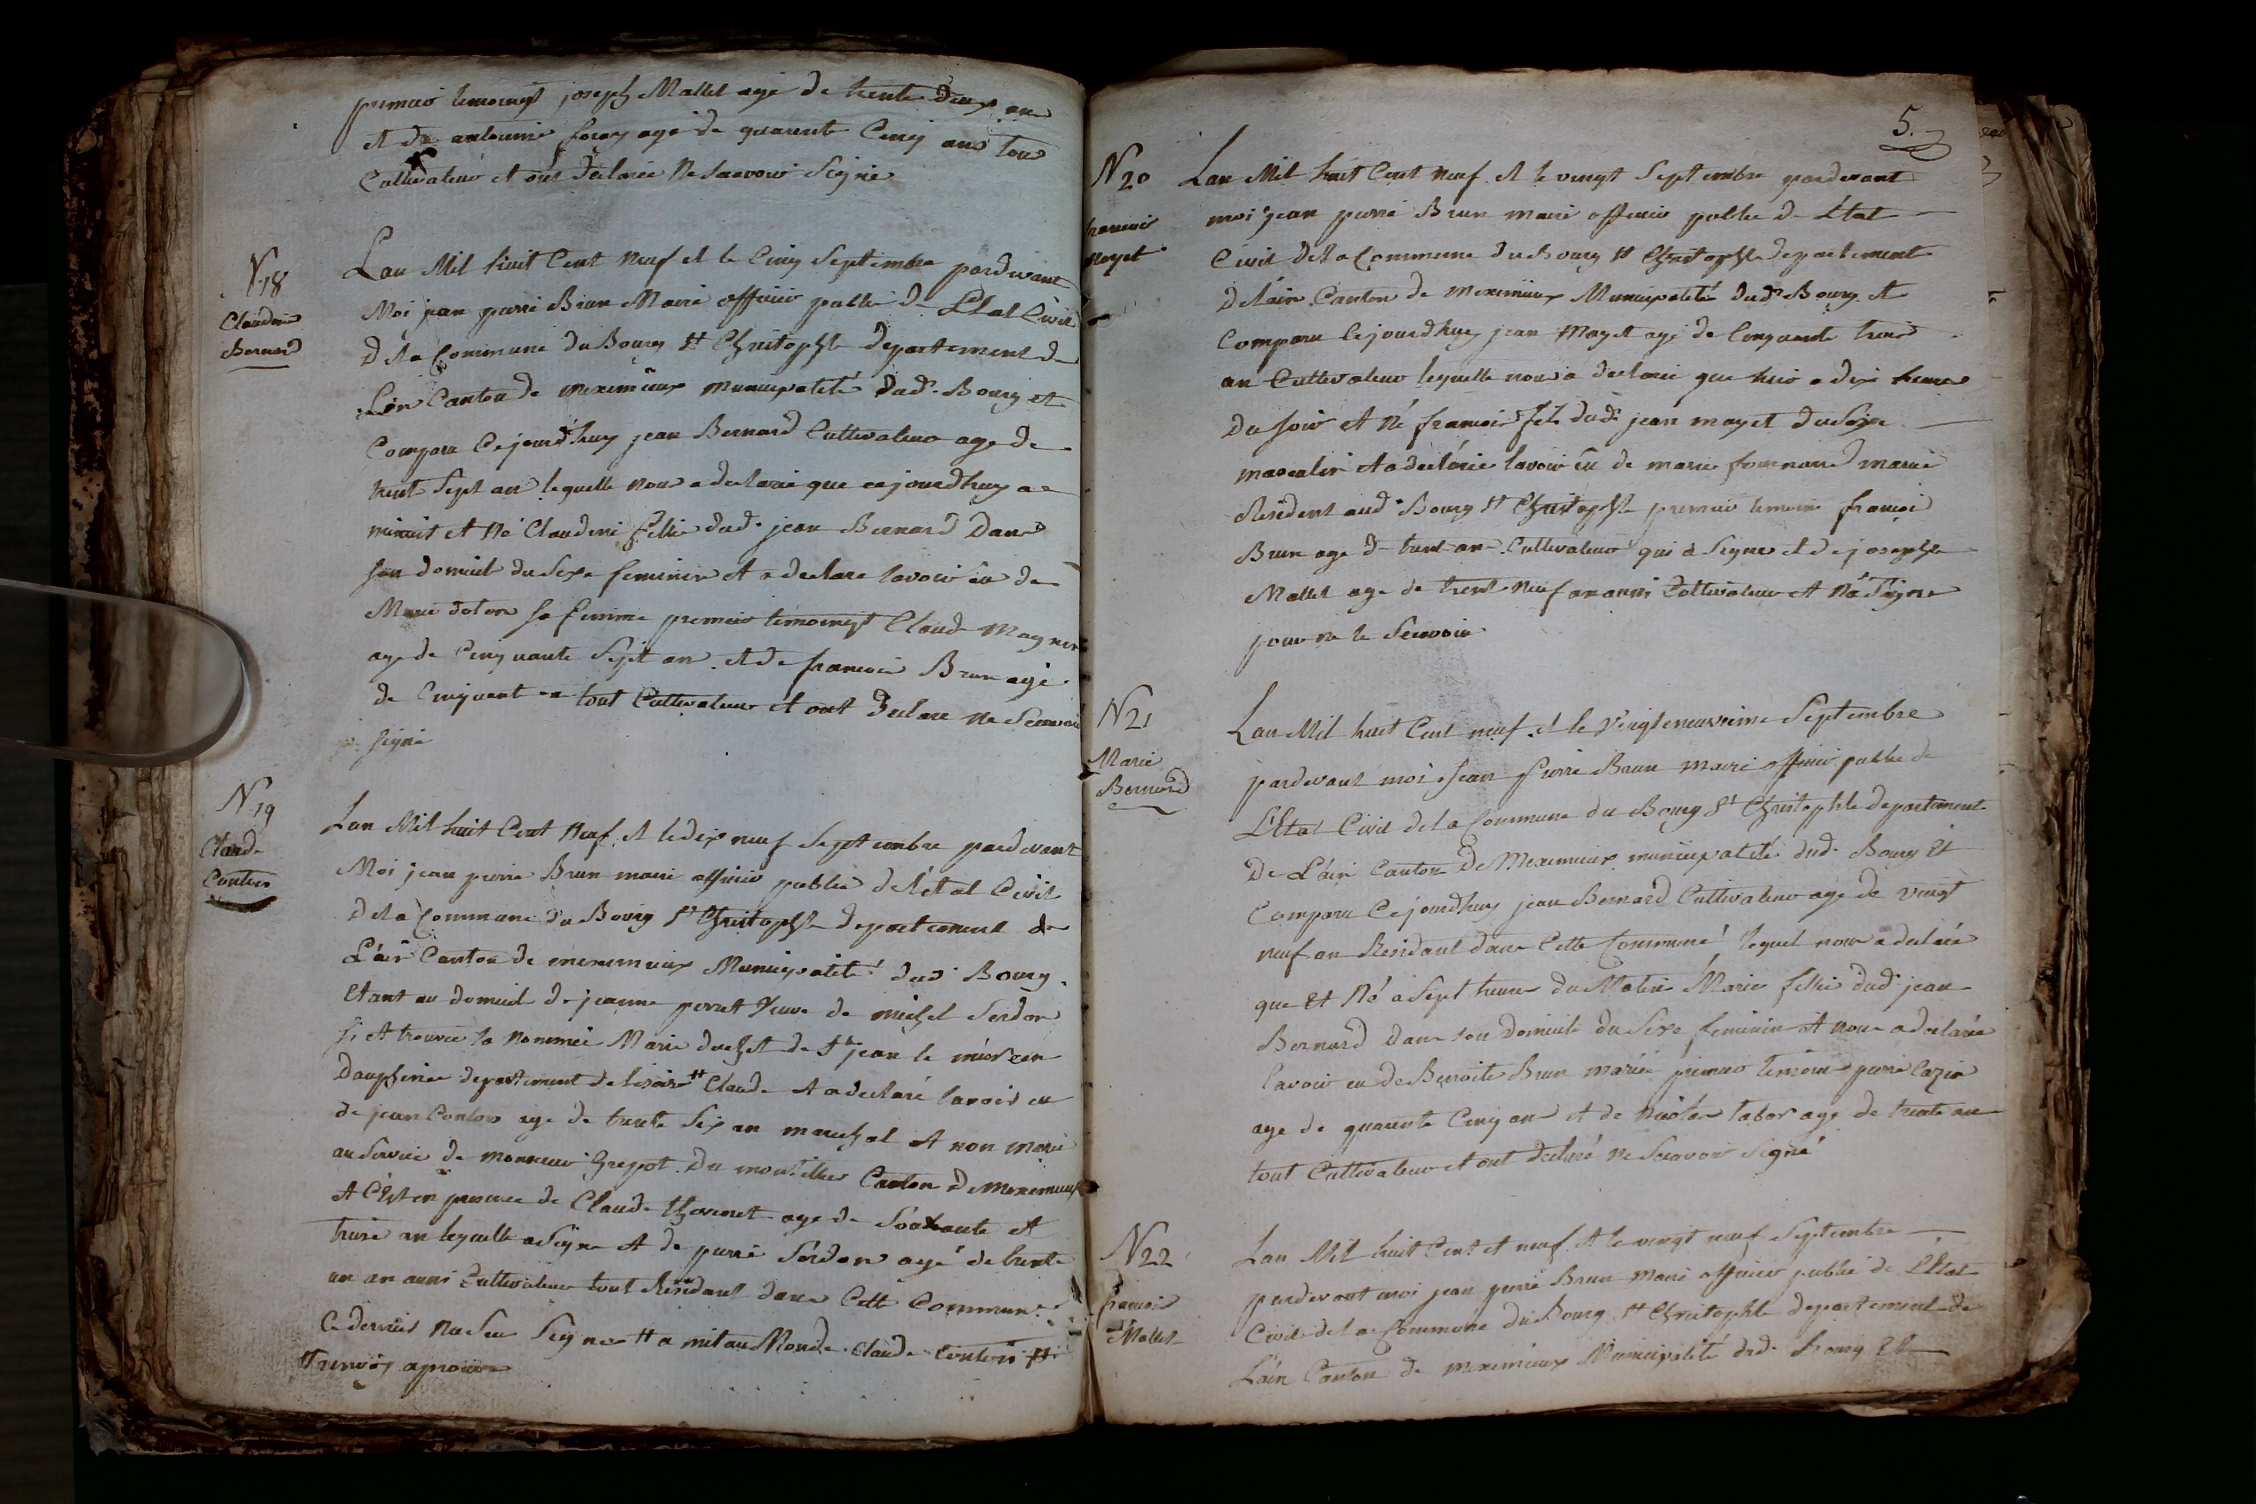 premier temoingt joseph Mallet agé de trente deux an
et de antoinne foray agé de quarente Cinq ans tous
Cultivateur et ont declarée ne scavoir Signé
N 18
Claudine
Bernard
Lan Mil huit Cent neuf et le Cinq Septembre pardevant
Moi jean pierre Brun Maire officier public de L'Etat Civil
de la Commune du Bourg St Christophle departement de
L'ain Canton de meximieux municipalité dud. Bourg et
Comparu Cejourdhuy jean Bernard Cultivateur age de
trent Sept an lequelle nous a declarée que cejourdhuy a
minuit et né Claudine fellie dud. jean Bernard Dans
son domicil du Sexe feminin et a declare lavoir eu de
Marie sa femme premier temoingt Claude Magnin
age de Cinquante Sept an et de francois Brun agé
de Cinquant an tout Cultivateur et ont Declare ne Scavoir
signé
N 19
Claude
Contin
Lan Mil huit Cent Neuf et le dix neuf Septembre pardevant
Moi jean pierre Brun maire officier public de l'état Civil
de la Commune du Bourg St Christophle departement de
L'ain Canton de meximieux Municipalité dud. Bourg
Etant au domicil de jeanne perret veuve de michel Serdon
si et trouvée la nommée Marie duchet de St jean le
Dauphinee departement de lisoire # Claude et a declaré lavoir eu
de jean Contin age de trente Six an marechal et non marié
au Service de monsieur Grepot du montellier Canton de Meximieux
et Cest en presence de Claude thevenet age de Soixante et
treize an lequelle a Signe et de pierre Serdon agé de trente
un an aussi Cultivateur tout Residant dans Cette Commune
Ce dernier na Seu Signer # a mit au Monde Claude Contin #
renvoy aprouve
5.
N 20
francois
Mayet
Lan Mil huit Cent neuf et le vingt Septembre pardevant
moi jean pierre Brun maire officier public de L'Etat
Civil de la Commune du Bourg St Christophle departement
de lain Canton de meximieux Municipalité dud. Bourg et
Comparu Cejourdhuy jean Mayet agé de Cinquante trois
an Cultivateur lequelle nous a declarée que hier a dix heure
du soir et né francois fils dud. jean mayet du Sexe
masculin et a declarée lavoir eu de marie mariee
Resident aud. Bourg St Christophle premier temoin francois
Brun age de trent an Cultivateur qui a Signer et de josephe
Mallet age de trent neuf an aussi Cultivateur et na Signe
pour ne le Scavoir
N 21
Marie
Bernard
Lan Mil huit Cent neuf et le vingt neuvieme Septembre
pardevant moi jean pierre Brun maire officier public de
L'Etat Civil de la Commune du Bourg St Christophle departement
De L'ain Canton De Meximieux municipalité dud. Bourg Et
Comparu Cejourdhuy jean Bernard Cultivateur age de vingt
neuf an Residant dans Cette Commune lequel nous a declarée
que Et Né a Sept heure du Matin Marie fellie dud. jean
Bernard Dans son Domicile du Sexe feminin et nous a declarée
lavoir eu de Benoite Brun mariée premier temoin pierre Cazin
age de quarente Cinq an et de Nicolas tabor age de trente an
tout Cultivateur et ont Declaré ne Scavoir Signé
N 22
francois
Mallet
Lan Mil huit Cent et neuf et le vingt neuf Septembre
pardevant moi jean pierre Brun Maire officier public de L'Etat
Civil de la Commune du Bourg St Christophle departement de
L'ain Canton de meximieux Municipalité dud. Bourg Et